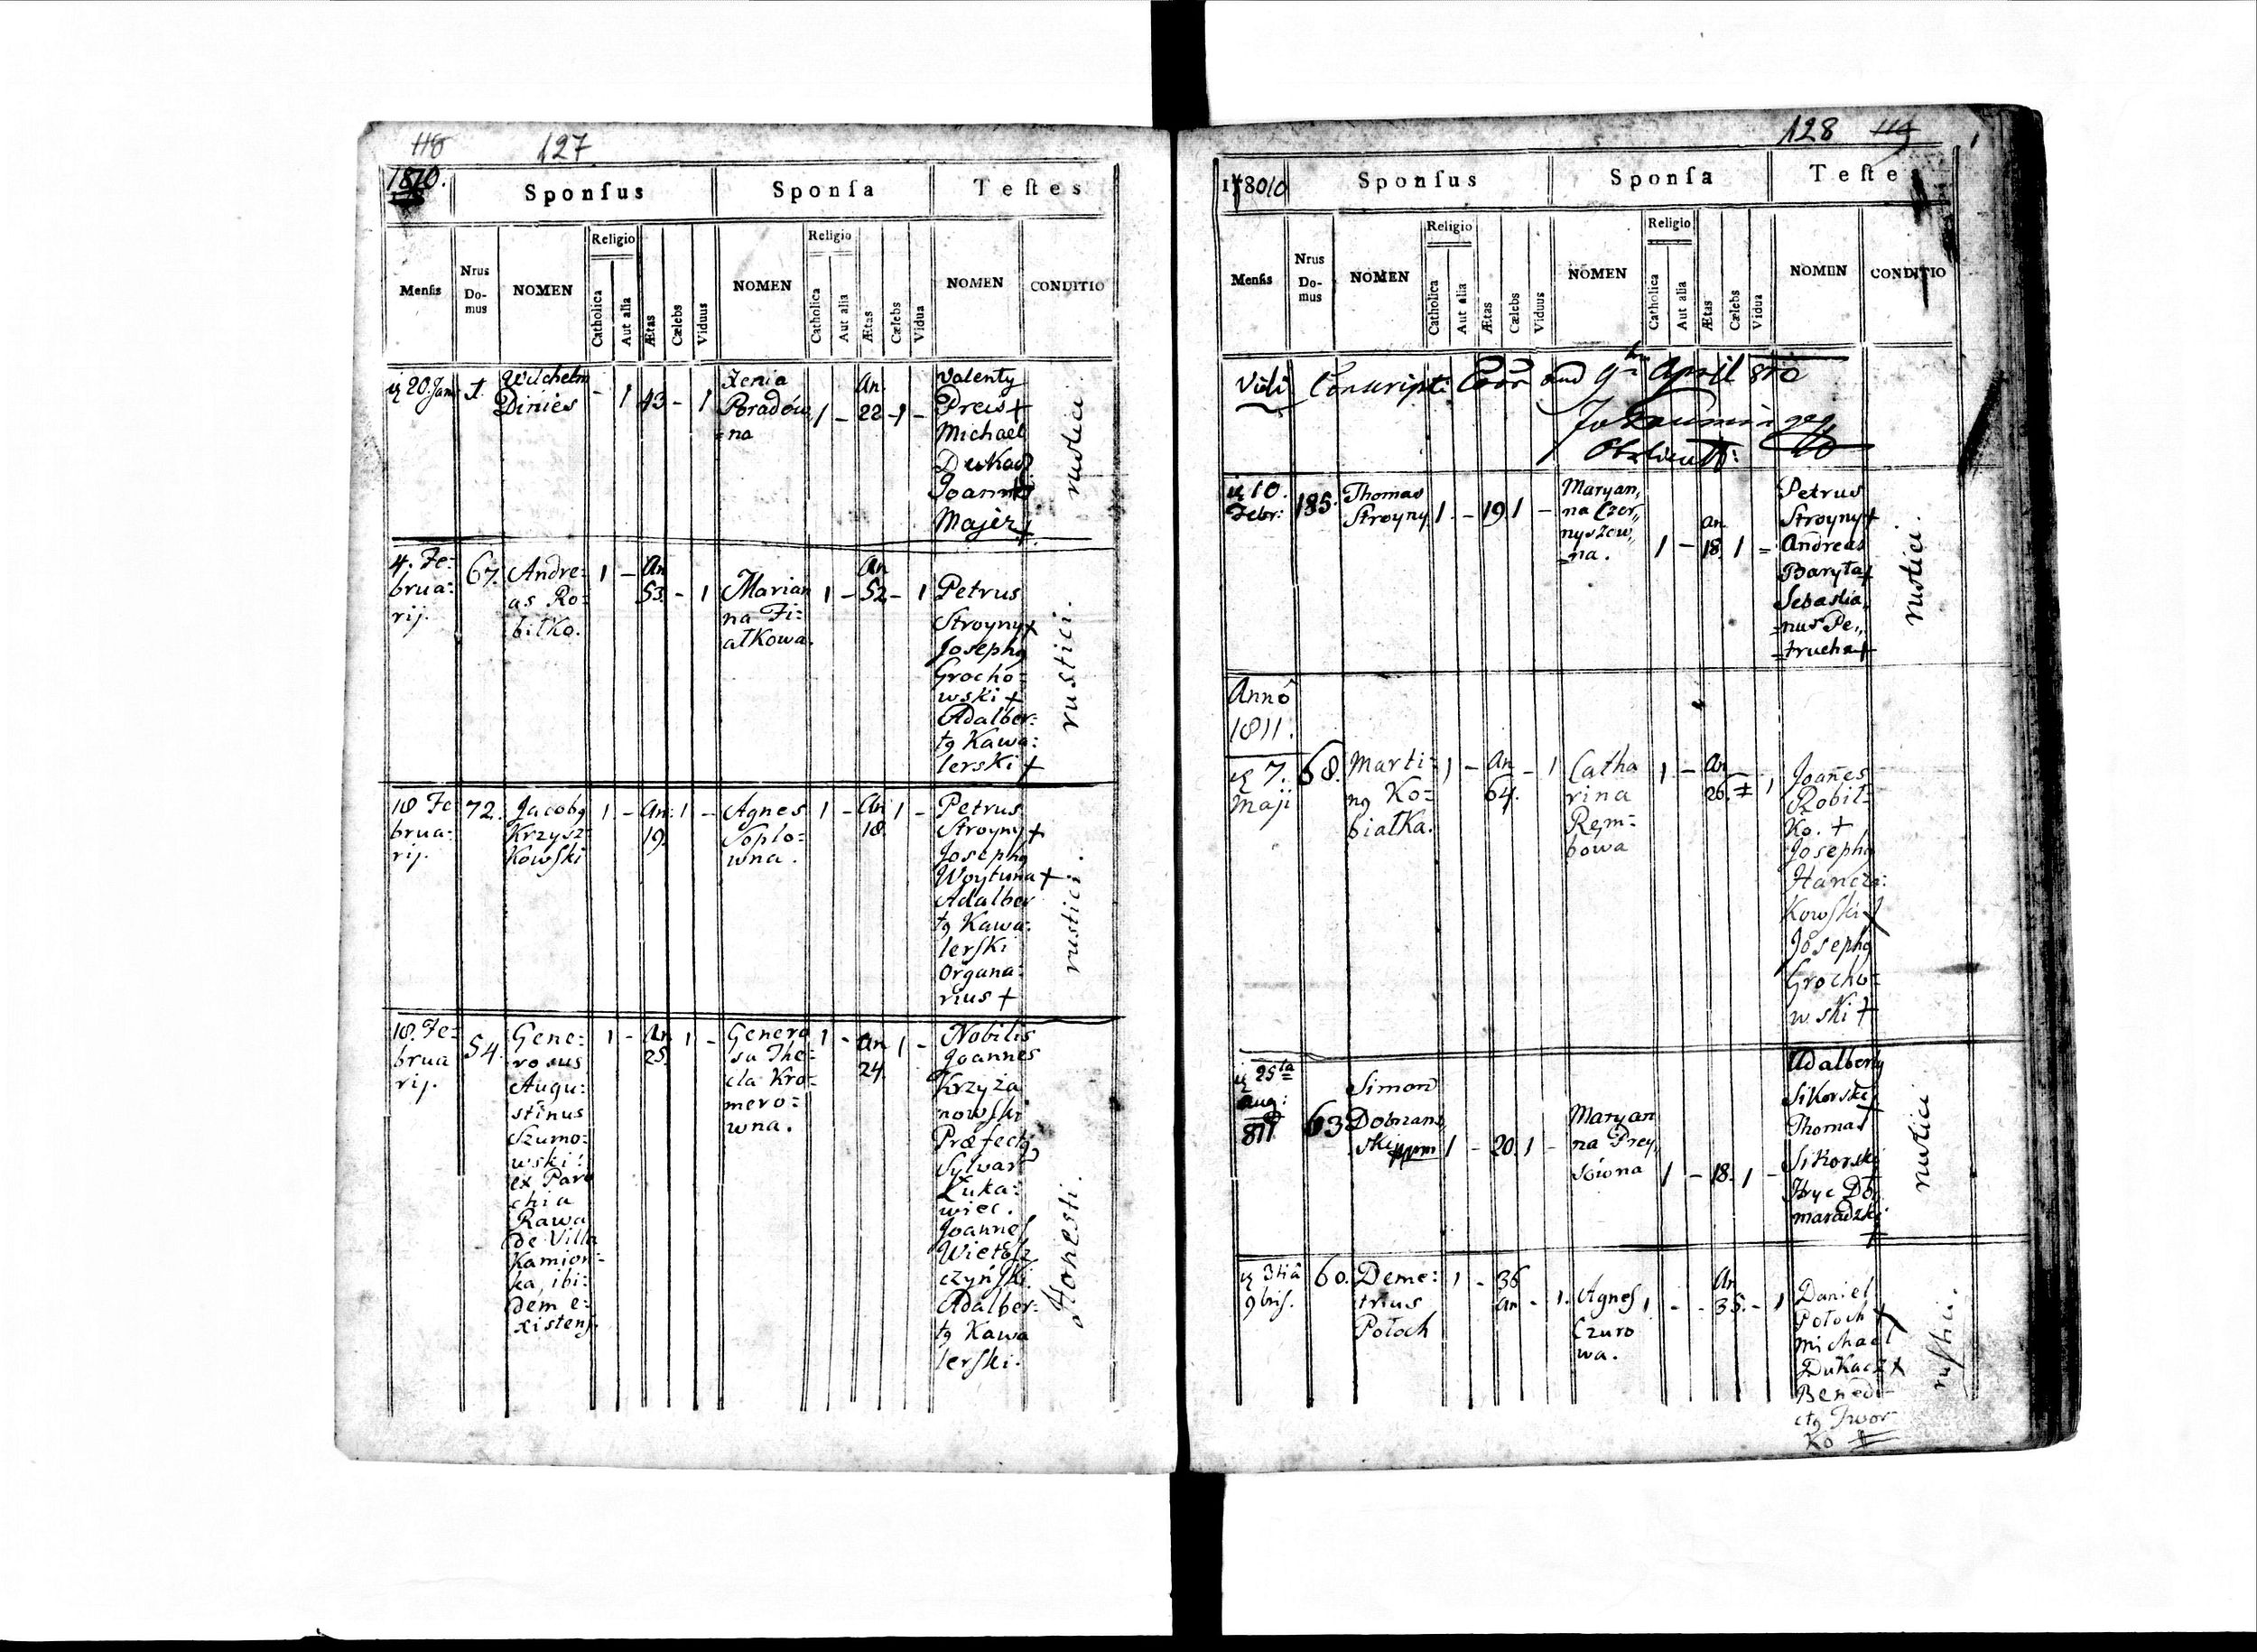 118 127
1810.
Sponſus Sponſa Teſtes
Menſis
Nrus
Do-
mus
NOMEN
Religio
Catholica
Aut alia
Ætas
Cælebs
Viduus
NOMEN
Religio
Catholica
Aut alia
Ætas
Cælebs
Vidua
NOMEN
CONDITIO
20. Jan
Wilchelm
Dinies
- 1 43 - 1
Xenia
Poradów
=na
1 - An 22 - 1 -
Valenty
Preis +
Michael
Dukacz
Joannes
Majer +
rustici.
4. Fe:
brua:
rij.
67.
Andre:
as Ro:
bitko.
1 - An 53. - 1
Marian
na Fi:
atkowa.
1 - An 52 - 1
Petrus
Stroyny +
Josephg
Grocho:
wski +
Adalber:
tg Kawa:
lerski +
rustici.
18 Fe
brua:
rij.
72.
Jacobg
Krzysz:
Kowſki
1 - An: 19. 1 -
Agnes
Soplo:
wna.
1 - An 18. 1 -
Petrus
Stroyny +
Josephg
Woytuna +
Adalber
tg Kawa:
lerſki
Organa:
rius +
rustici.
18. Fe:
brua
rij.
54.
Gene:
rosus
Augu:
stinus
Szumo:
wski:
ex Paro
chia
Rawa
de Villa
Kamion:
ka, ibi:
dem e:
xistens.
1 - An 25. 1 -
Genero
sa The:
cla Kro:
mero:
wna.
1 - An 24. 1 -
Nobilis
Joannes
Krzyża
nowſki
Præfectg
Sylvar
Łuka:
wiec.
Joannes
czyńſki.
Adalber:
tg Kawa
lerſki.
Honesti.
128 119
17 8010
Sponſus Sponſa Teſte
Menſis
Nrus
Do-
mus
NOMEN
Religio
Catholica
Aut alia
Ætas
Cælebs
Viduus
NOMEN
Religio
Catholica
Aut alia
Ætas
Cælebs
Vidua
NOMEN
CONDITIO
Vidi April
10.
Febr:
185.
Thomas
Stroyny
1. - 19. 1 -
Maryan,,
na Czer,,
nyszew,,
=na.
1 - An 18. 1 =
Petrus
Stroyny +
Andreas
Baryła +
Sebastia,,
=nus Pe,,
=trucha +
rustici.
Anno
1811.
7.
Maji
68.
Marti:
ng Ko:
białka.
1 - An 64. - 1
Catha
rina
Rem:
bowa
1 - An 26. 1
Joañes
Robit:
Ko. +
Josephg
Hancza:
Kowſki +
Josephg
Grocho:
wski +
25ta
Aug:
811
63
Simon
Dobrzans,
ski
1 - 20. 1 -
Maryan
na Prey,
sówna
1 - 18. 1 -
Adalbertg
Sikorski
Thomas
Sikorski
Hryc Do,
maradzki
+
rustici
3tia
9bris.
60.
Deme:
trius
Połoch
1 - 36 an - 1.
Agnes
Czuro
wa.
1 - An 35. - 1
Daniel
Połoch +
Michael
Dukacz +
Benedi-
ctg Iwor
Ko +
rustici.